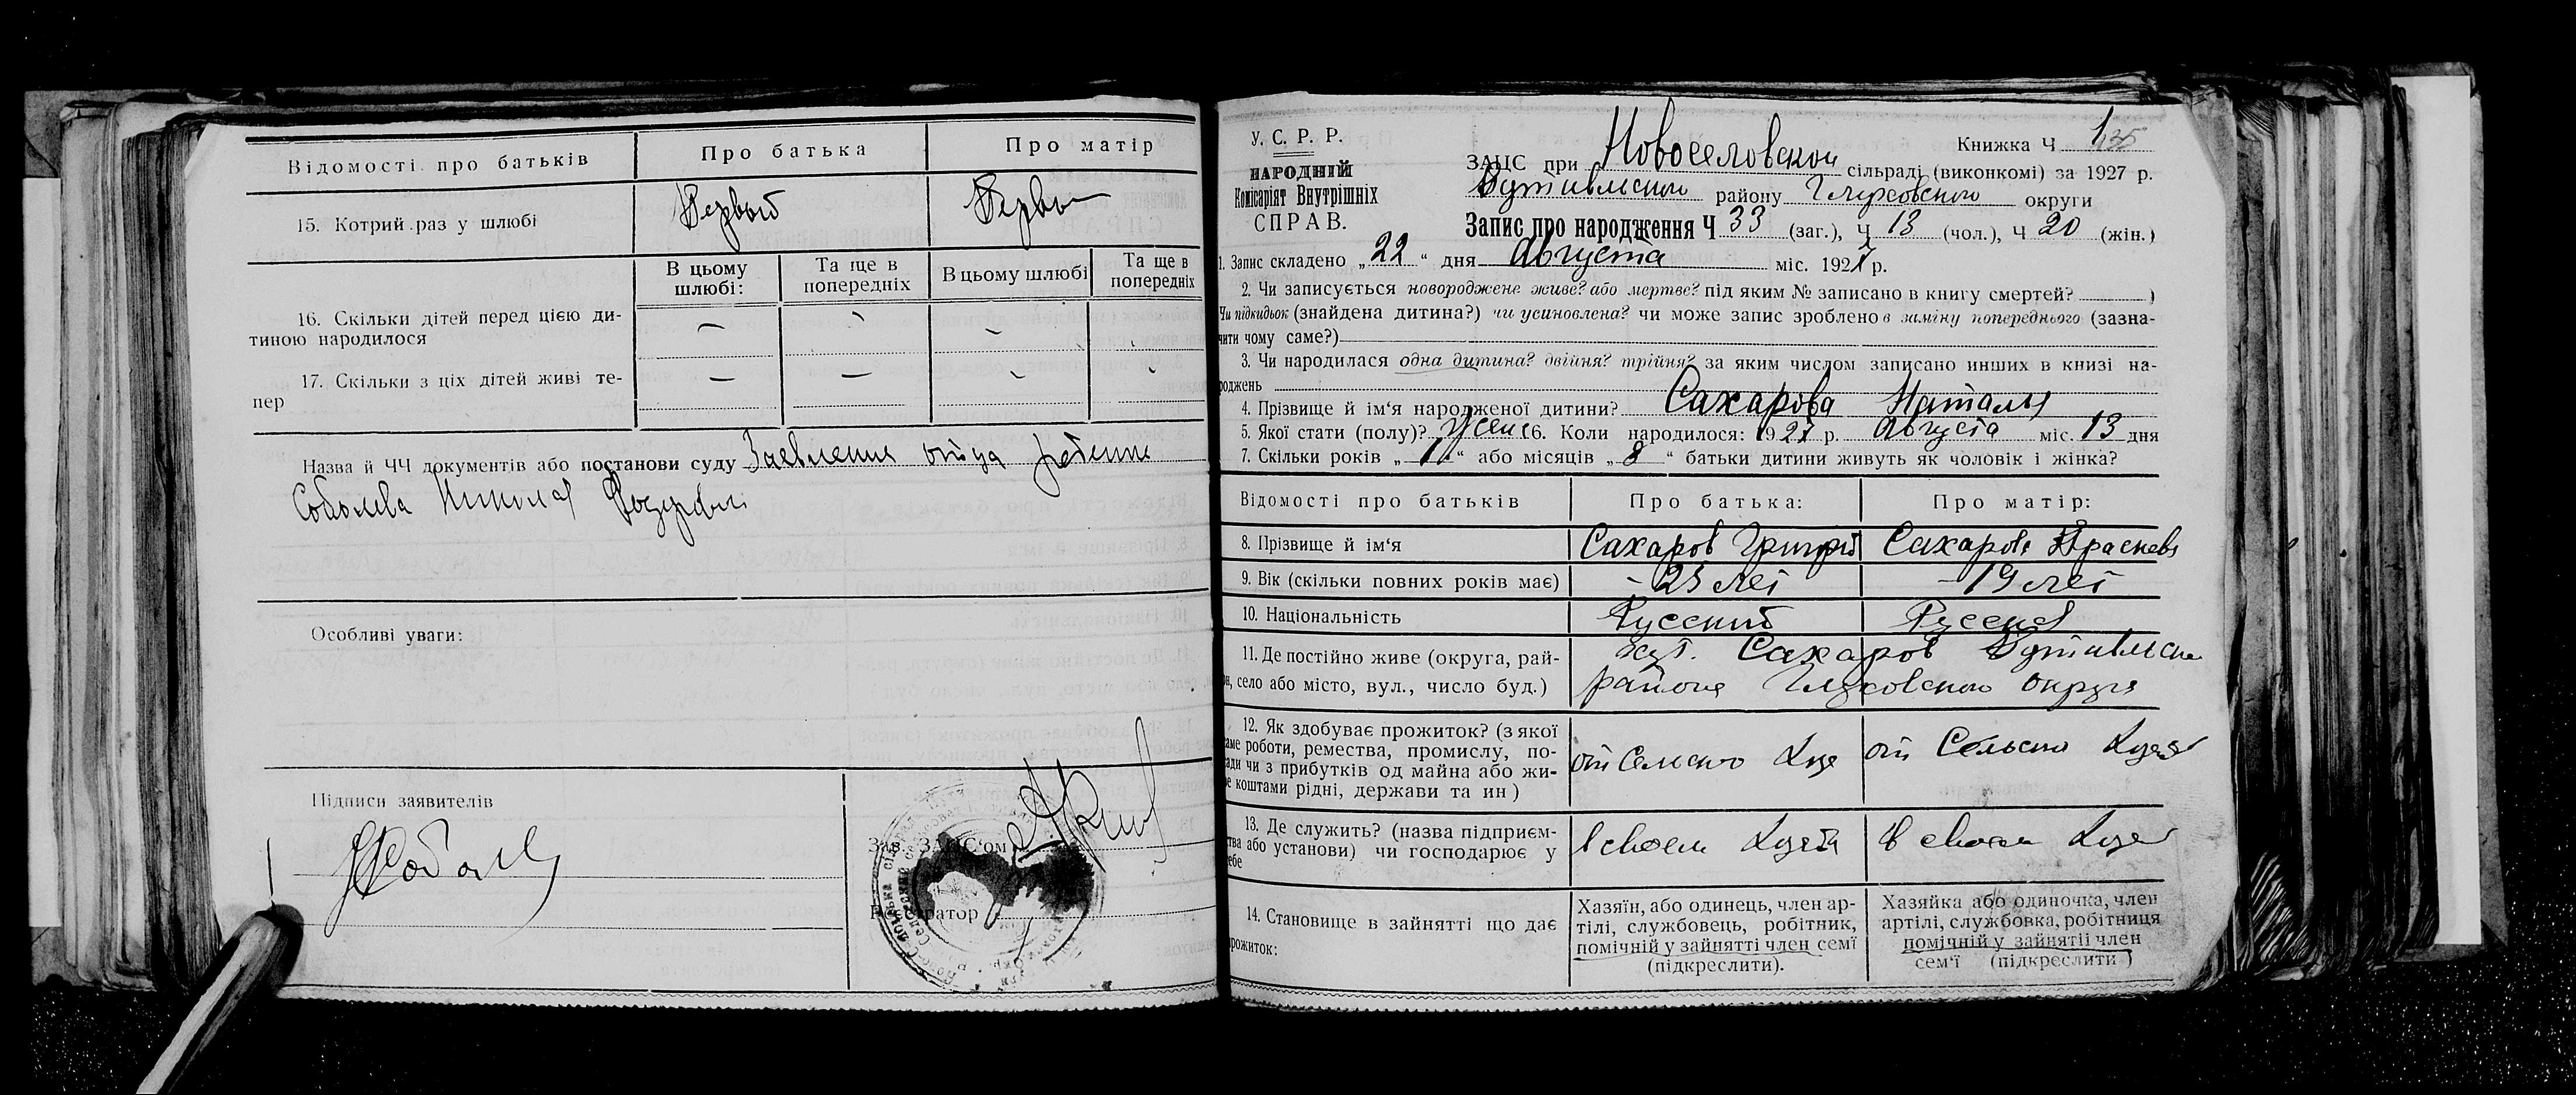 Відомості про батьків
Про батька
Про матір
15. Котрий раз у шлюбі
Первый
Первы
В цьому шлюбі:
Та ще в попередніх
В цьому шлюбі
Та ще в попередніх
16. Скільки дітей перед цією ди-
тиною народилося
— — — —
17. Скільки з ціх дітей живі те-
пер
— — — —
Назва й ЧЧ документів або постанови суду Заявление отца
Соболева Николая
Особливі уваги:
Підписи заявителів
Зав. ЗАЦС'ом
Реєстратор
У. С. Р. Р.
НАРОДНІЙ
Комісаріят Внутрішніх
СПРАВ.
Книжка Ч 1
135
ЗАЦС при Новоселовской сільраді (виконкомі) за 1927 р.
Путивльского району Глуховского округи
Запис про народження Ч 33 (заг.), Ч 13 (чол.), Ч 20 (жін.)
1. Запис складено „22“ дня Августа міс. 1927 р.
2. Чи записується новороджене живе? або мертве? під яким № записано в книгу смертей? )
Чи підкидьок (знайдена дитина?) чи усиновлена? чи може запис зроблено в заміну попереднього (зазна-
чити чому саме?)
3. Чи народилася одна дитина? двійня? трійня? за яким числом записано инших в книзі на-
роджень
4. Прізвище й ім‘я народженої дитини? Сахарова Наталья
5. Якої стати (полу)? женс 6. Коли народилося: 1927 р. Августа міс. 13 дня
7. Скільки років „1“ або місяців „8“ батьки дитини живуть як чоловік і жінка?
Відомості про батьків
Про батька:
Про матір:
8. Прізвище й ім‘я
Сахаров Григорий
Сахарова
9. Вік (скільки повних років має)
- 23 лет
- 19 лет
10. Національність
Русский
Русская
11. Де постійно живе (округа, рай-
он, село або місто, вул., число буд.)
хут. Сахаров Путивльско
района Глуховского округа
12. Як здобуває прожиток? (з якої
саме роботи, ремества, промислу, по-
сади чи з прибутків од майна або жи-
ве коштами рідні, держави та ин)
от Сельско Хозя
от Сельско Хозя
13. Де служить? (назва підприєм-
ства або установи) чи господарює у
себе
в своем Хозя
в своем Хозя
14. Становище в зайнятті що дає
прожиток:
Хазяїн, або одинець, член ар-
тілі, службовець, робітник,
помічній у зайнятті член семї
(підкреслити).
Хазяйка або одиночка, член
артілі, службовка, робітниця
помічній у зайнятіі член
сем'ї (підкреслити)